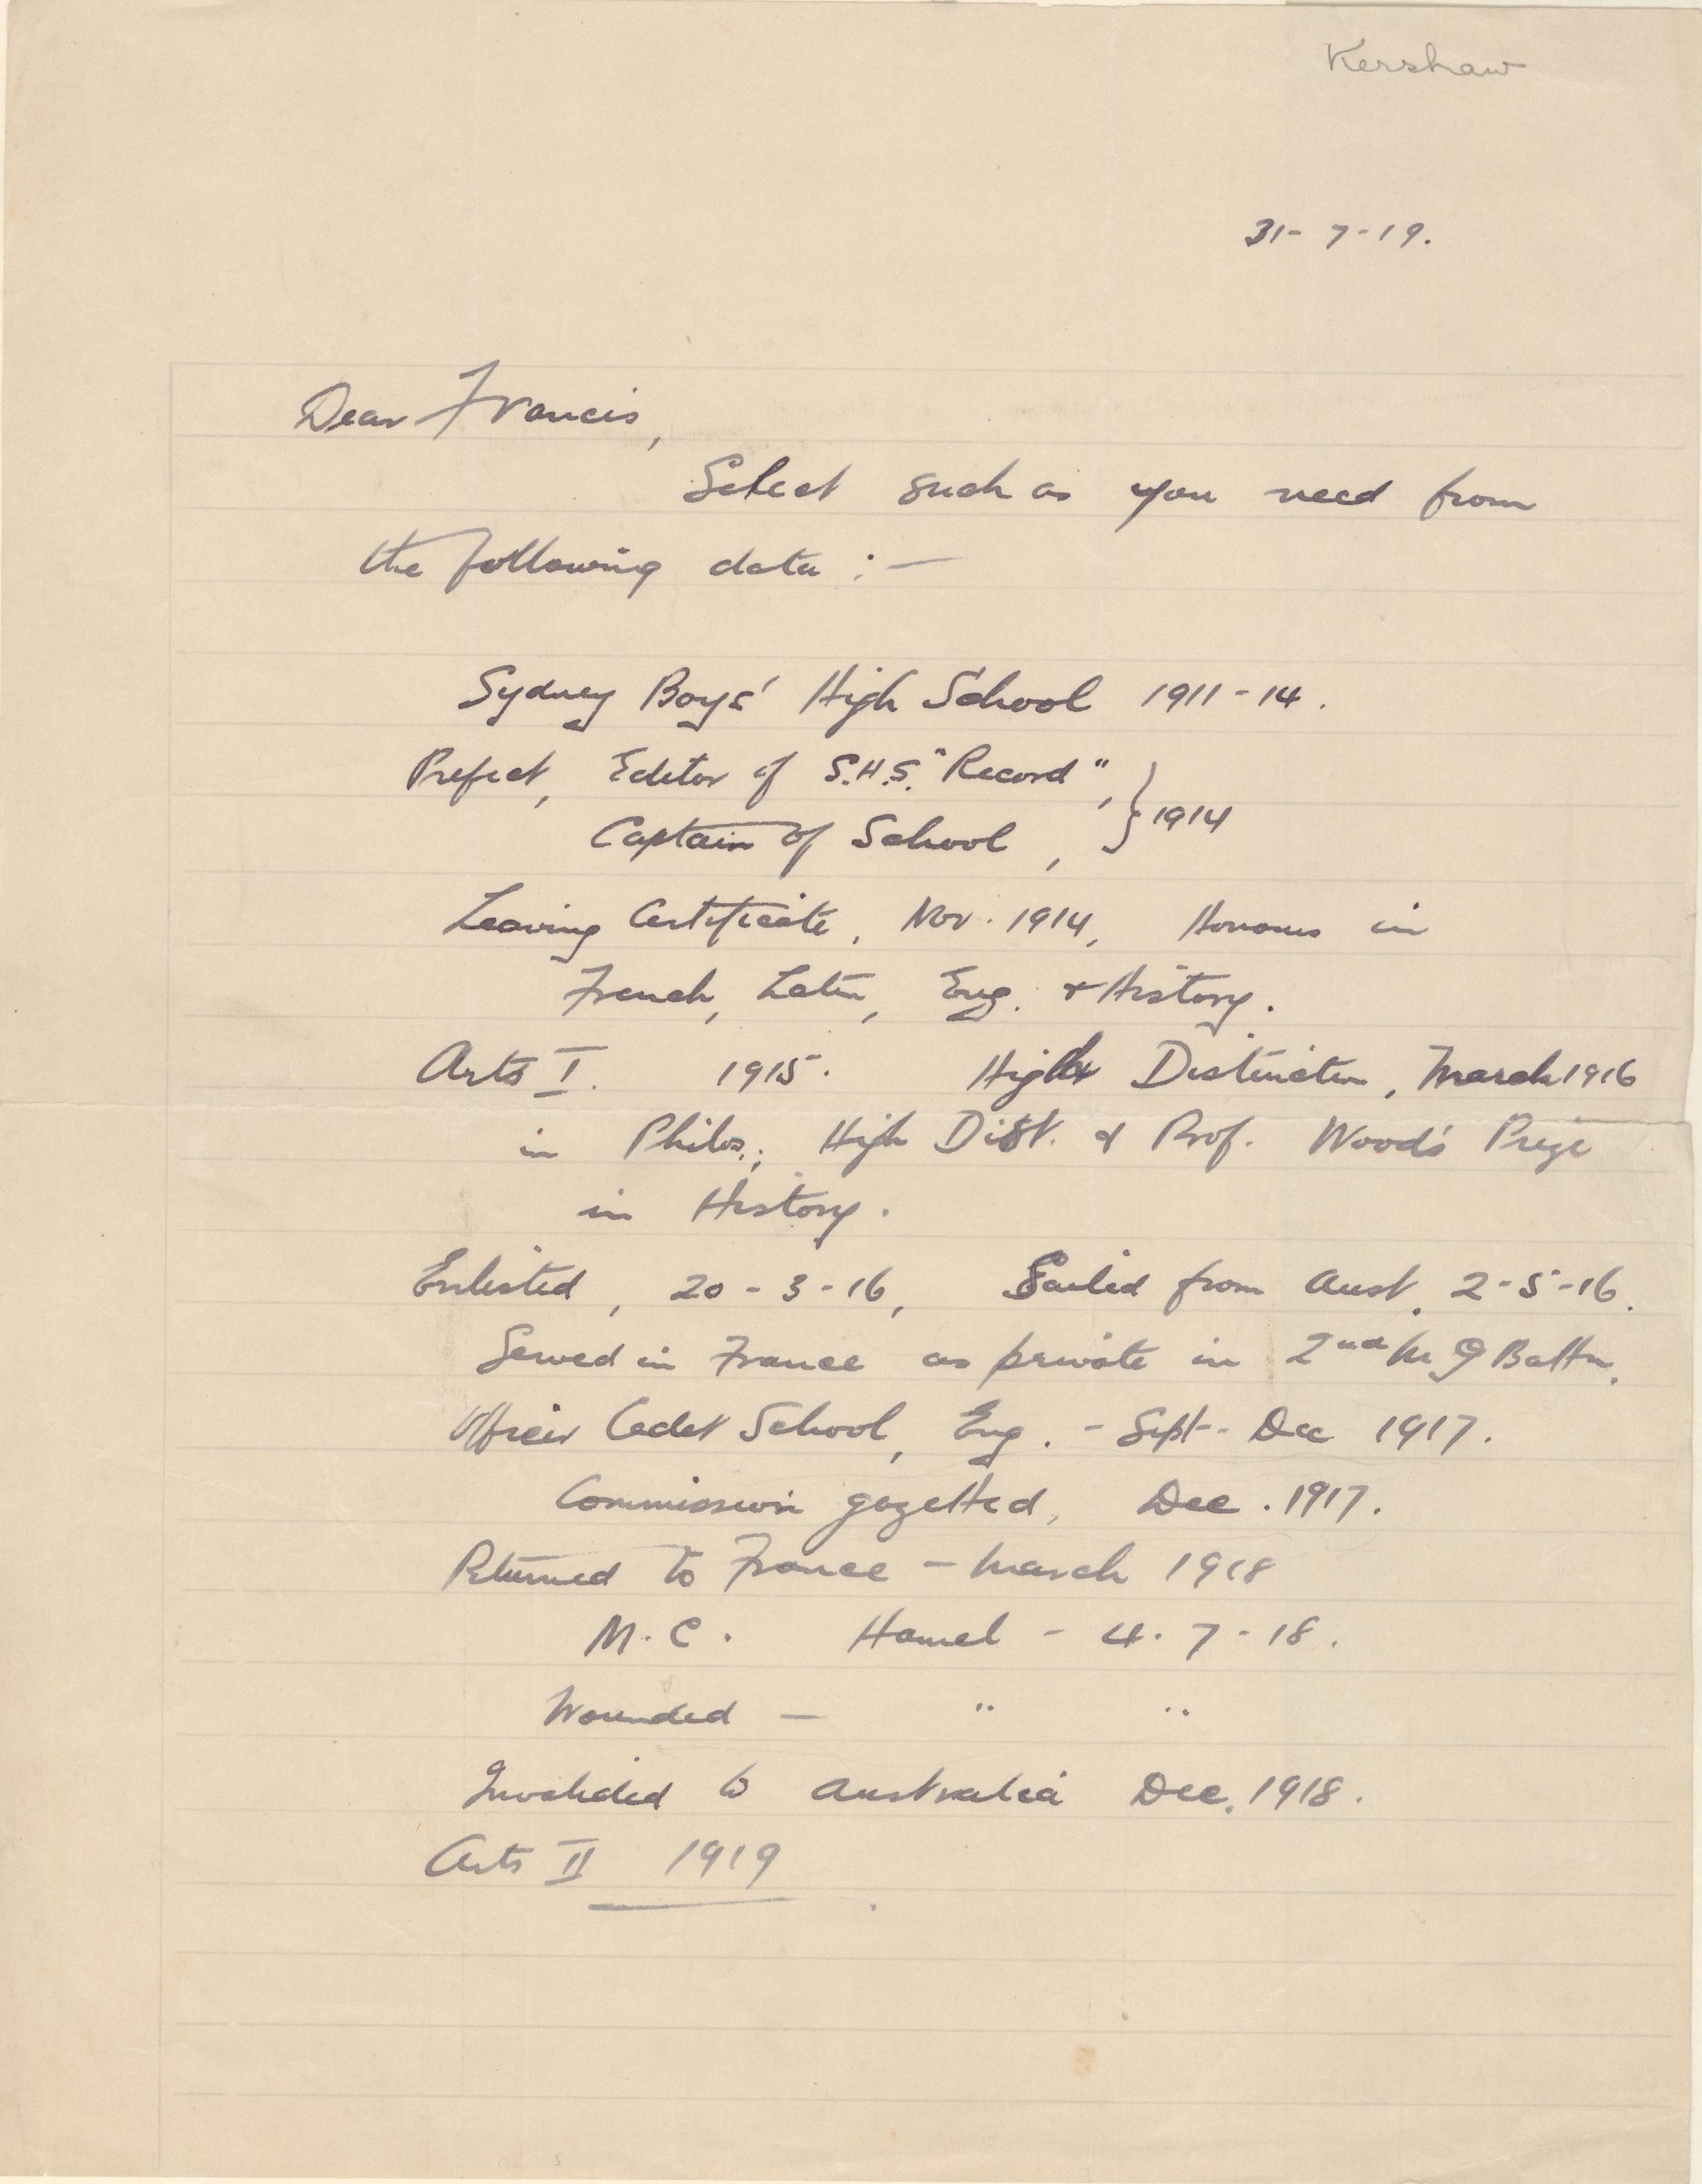 Kershaw
31-7-19.
Dear Francis,
Select such as you need from
the following data :—
Sydney Boys' High School 1911-14.
Prefect, Editor of S.H.S. "Record",
Captain of School, } 1914
Leaving Certificate, Nov. 1914, Honours in
French, Latin, Eng. & History.
Arts I. 1915. High Distinction, March 1916
in Philos.; High Dist. & Prof. Wood's Prize
in History.
Enlisted, 20-3-16, Sailed from Aust. 2-5-16.
Served in France as private in 2nd M G Battn.
Officer Cadet School, Eng. - Sept - Dec 1917.
Commission gazetted, Dec. 1917.
Returned to France - March 1918
M.C. Hamel - 4.7-18.
Wounded — " "
Invalided to Australia Dec. 1918.
Arts II 1919